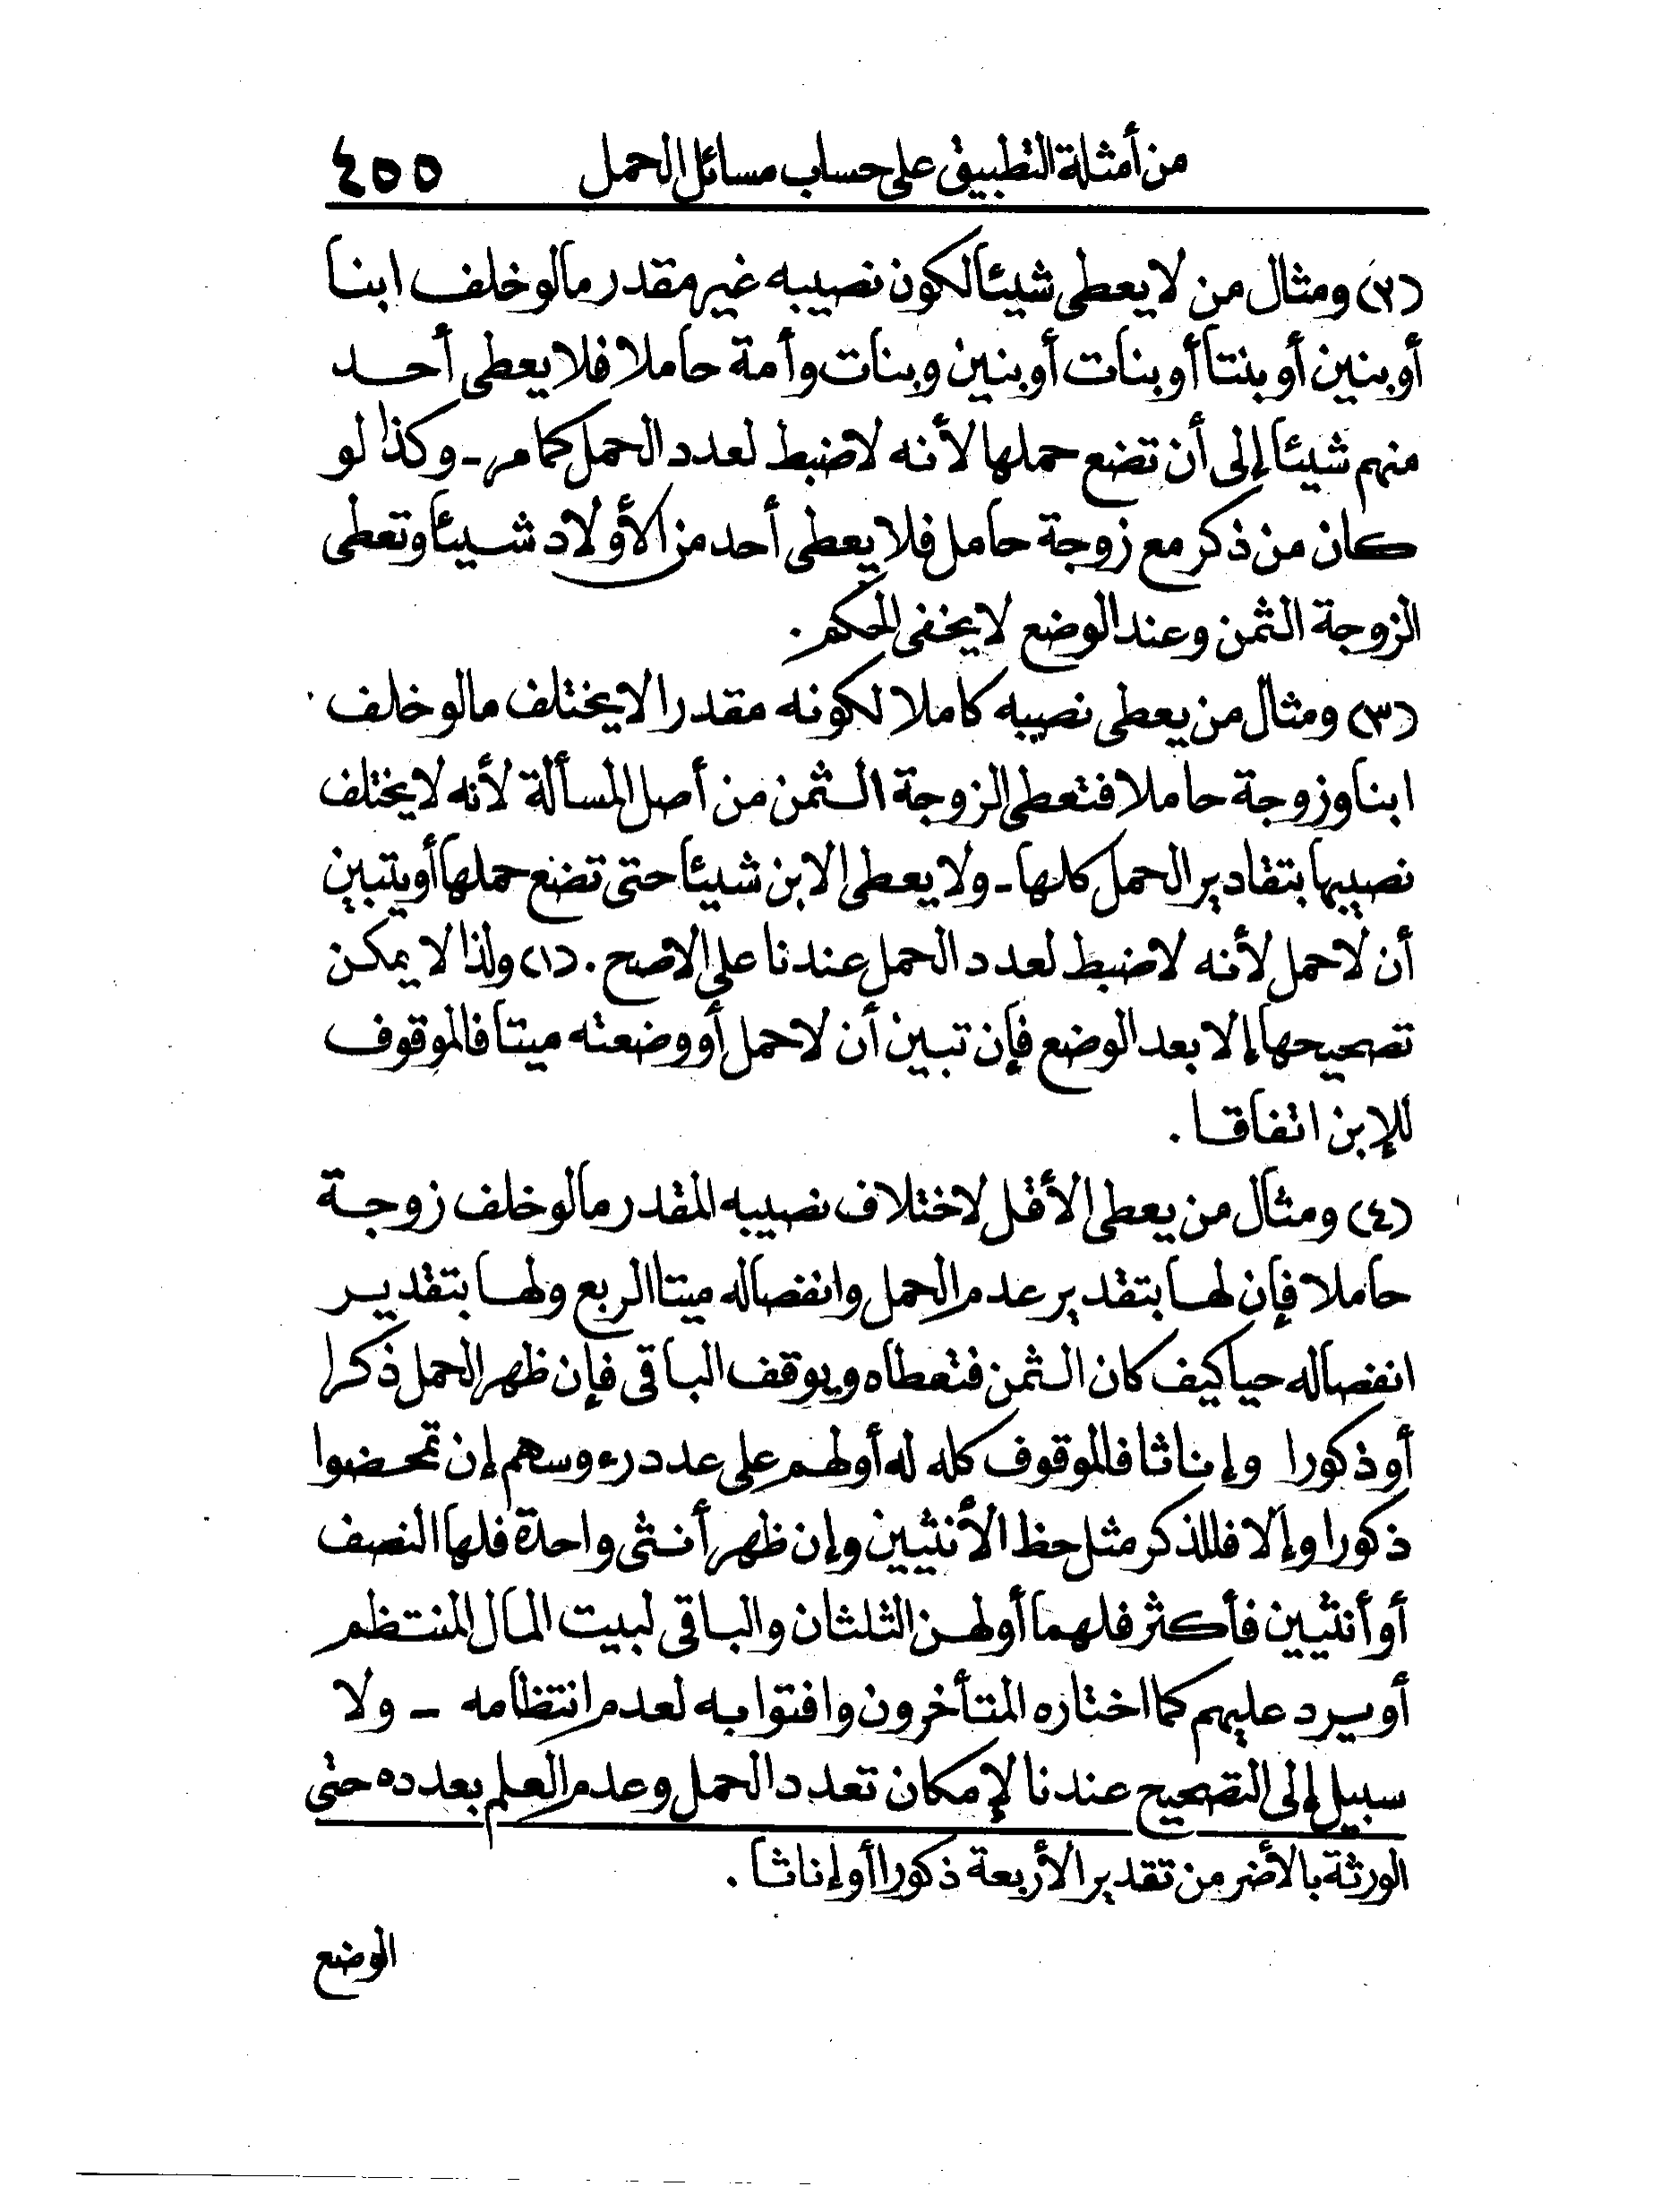 من أمثلة التطبيق على حساب مسائل الحمل ٤٥٥
(٢) ومثال من لا يعطى شيئا لكون نصيبه غير مقدر ما لو خلف ابنا
أو بنين أو بنتا أو بنات أو بنين وبنات وأمة حاملا فلا يعطى أحد
منهم شيئا إلى أن تضع حملها لأنه لا ضبط لعدد الحمل كما مر - وكذا لو
كان من ذكر مع زوجة حامل فلا يعطى أحد من الأولاد شيئا وتعطى
الزوجة الثمن وعند الوضع لا يخفى الحكم .
(٣) ومثال من يعطى نصيبه كاملا لكونه مقدرا لا يختلف ما لو خلف
ابنا وزوجة حاملا فتعطى الزوجة الثمن من أصل المسألة لأنه لا يختلف
نصيبها بتقادير الحمل كلها - ولا يعطى الابن شيئا حتى تضع حملها أو يتبين
أن لا حمل لأنه لا ضبط لعدد الحمل عندنا على الاصح . (١) ولذا لا يمكن
تصحيحها إلا بعد الوضع فإن تبين أن لا حمل أو وضعته ميتا فالموقوف
للإبن اتفاقا .
(٤) ومثال من يعطى الأقل لاختلاف نصيبه المقدر ما لو خلف زوجة
حاملا فإن لها بتقدير عدم الحمل وانفصاله ميتا الربع ولها بتقدير
انفصاله حيا كيف كان الثمن فتعطاه ويوقف الباقى فإن ظهر الحمل ذكرا
أو ذكورا وإناثا فالموقوف كله له أو لهم على عدد رءوسهم إن تمحضوا
ذكورا وإلا فللذكر مثل حظ الأنثيين وإن ظهر أنثى واحدة فلها النصف
أو أنثيين فأكثر فلهما أو لهن الثلثان والباقى لبيت المال المنتظم
أو يرد عليهم كما اختاره المتأخرون وافتوا به لعدم انتظامه - ولا
سبيل إلى التصحيح عندنا لإمكان تعدد الحمل وعدم العلم بعدده حتى
الورثة بالأضر من تقدير الأربعة ذكورا أو إناثا .
الوضع